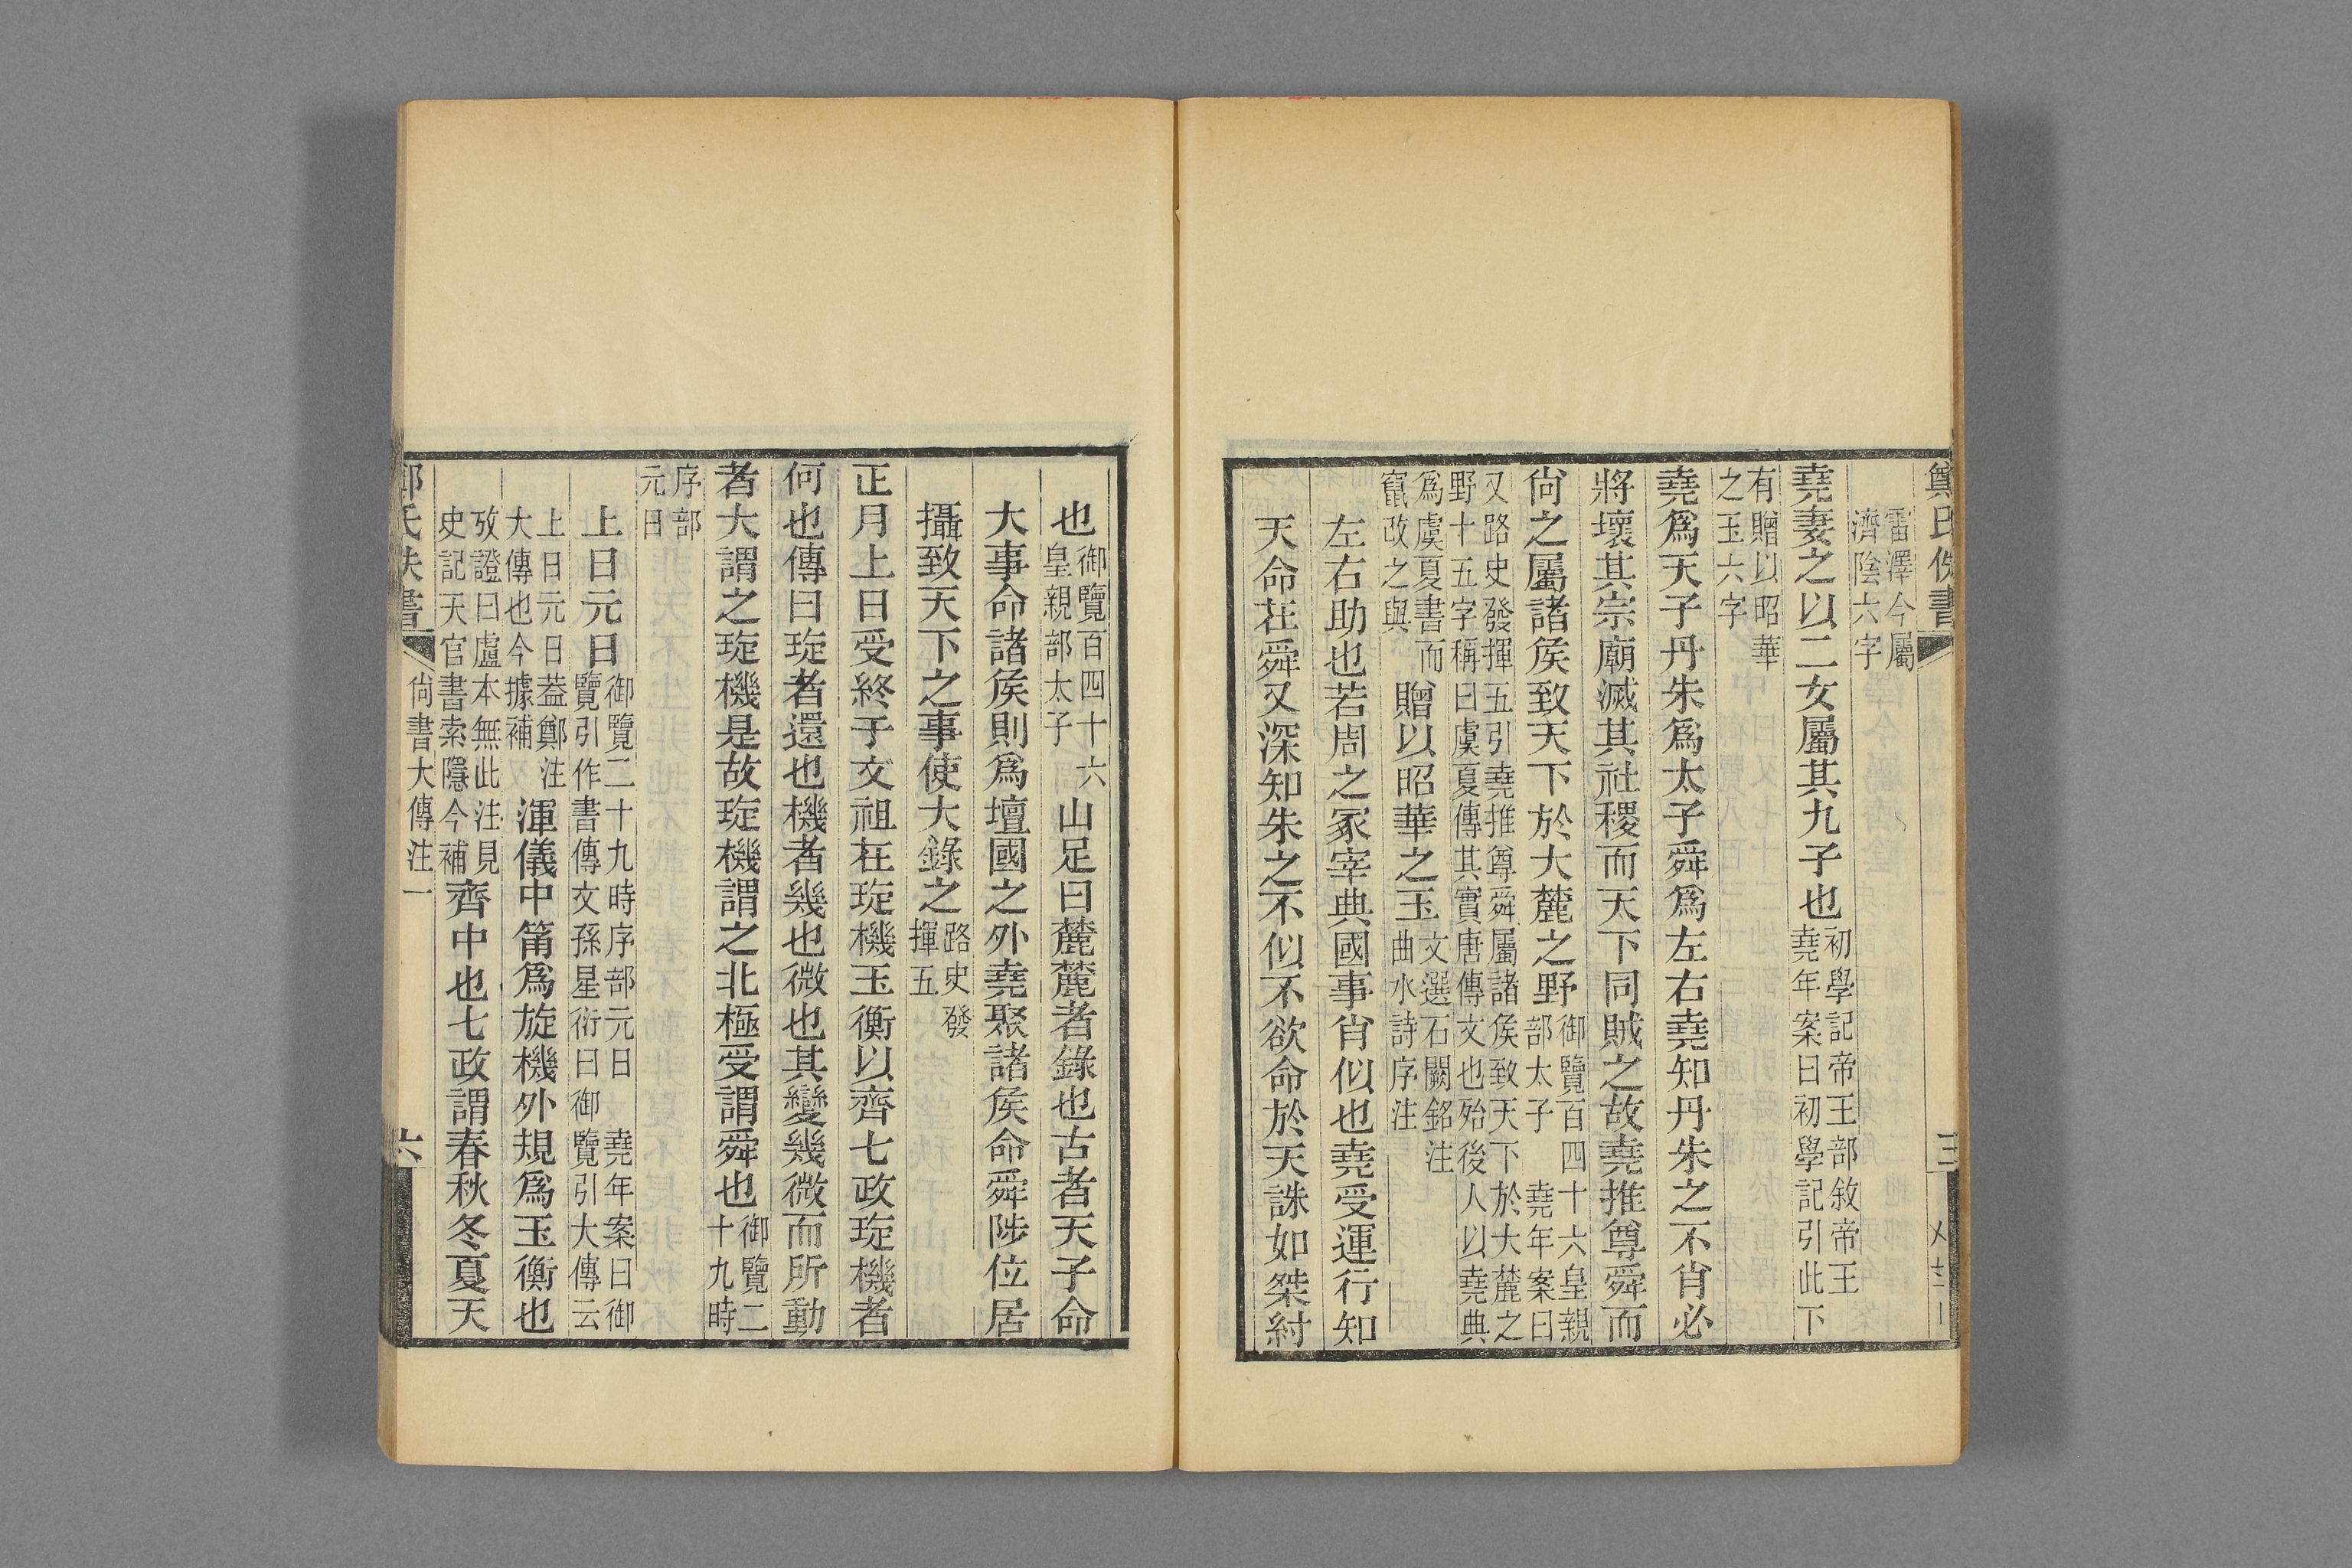 雷澤今屬濟陰六字
堯妻之以二女屬其九子也初學記帝王部敘帝王堯年案曰初學記引此下
有贈以昭華之玉六字
堯爲天子丹朱爲太子舜爲左右堯知丹朱之不肖必
將壞其宗廟滅其社稷而天下同賊之故堯推尊舜而
尙之屬諸侯致天下於大麓之野御覽百四十六皇親部太子 堯年案曰
又路史發揮五引堯推尊舜屬諸侯致天下於大麓之野十五字稱曰虞夏傳其實唐傳文也殆後人以堯典
爲虞夏書而竄改之與贈以昭華之玉文選石闕銘注曲水詩序注
左右助也若周之冢宰典國事肖似也堯受運行知
天命在舜又深知朱之不似不欲命於天誅如桀紂
也御覽百四十六皇親部太子山足曰麓麓者錄也古者天子命
大事命諸侯則爲壇國之外堯聚諸侯命舜陟位居
攝致天下之事使大錄之路史發揮五
正月上日受終于文祖在琁機玉衡以齊七政琁機者
何也傳曰琁者還也機者幾也微也其變幾微而所動
者大謂之琁機是故琁機謂之北極受謂舜也御覽二十九時
序部元日
上日元日御覽二十九時序部元日 堯年案曰御覽引作書傳文孫星衍曰御覽引大傳云
上日元日葢鄭注大傳也今據補渾儀中筩爲旋機外規爲玉衡也
攷證曰盧本無此注見史記天官書索隱今補齊中也七政謂春秋冬夏天
尙書大傳注一
六